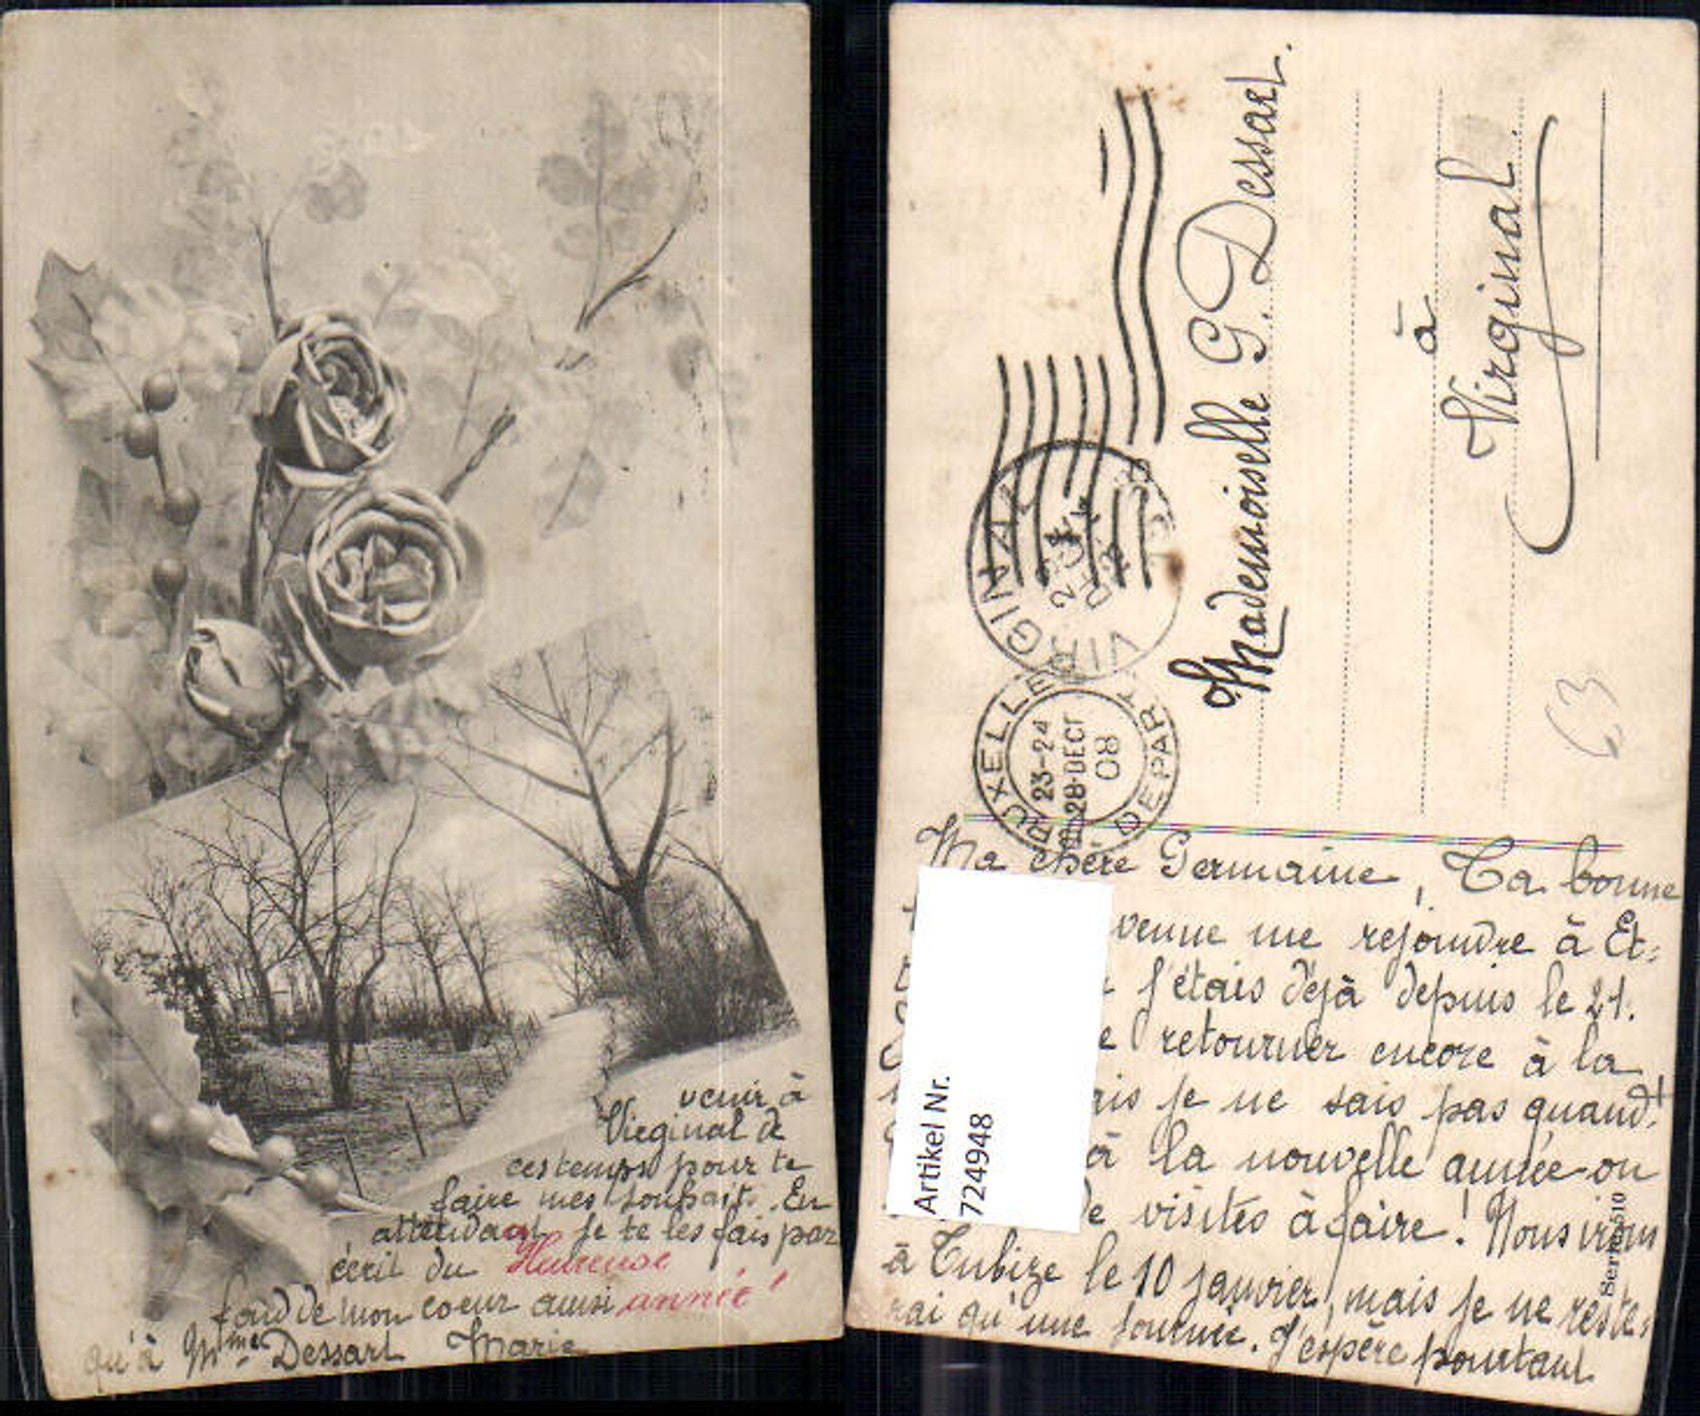 venir à
Virginal de
ces temps pour te
faire mes souhaits. En
attendant je te les fais par
écrit du
Heureuse
fond de mon coeur ainsi
année !
qu'à Mme Dessart Marie
Mademoiselle G. Dessart.
à
Virginal
VIRGINAL
BRUXELLES
23-24
28 DECT
08
DEPART
63
Ma chère Germaine, Ta bonne
venue me rejoindre à Et-
j'étais déjà depuis le 21.
e retourner encore à la
ais je ne sais pas quand!
à la nouvelle année on
de visites à faire ! Nous irons
à Tubize le 10 janvier, mais je ne reste-
rai qu'une journée. J'espère pourtant
Artikel Nr.
724948